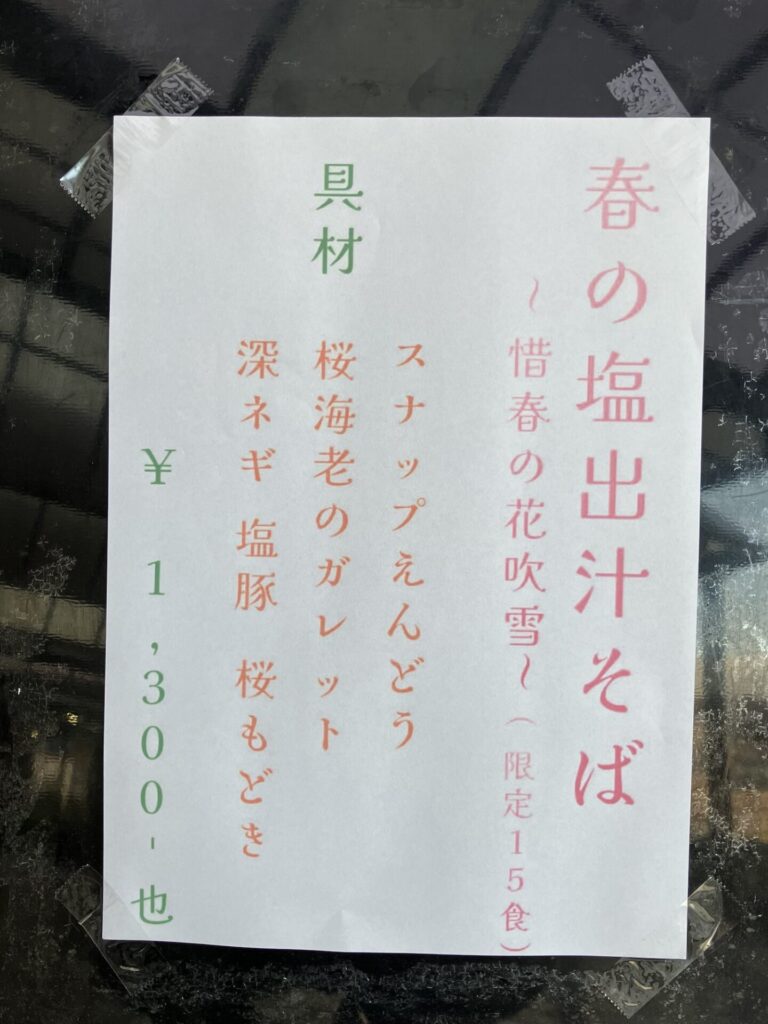 春の塩出汁そば
～惜春の花吹雪～（限定15食）
スナップえんどう
具材 桜海老のガレット
深ネギ 塩豚 桜もどき
¥ 1,300-也